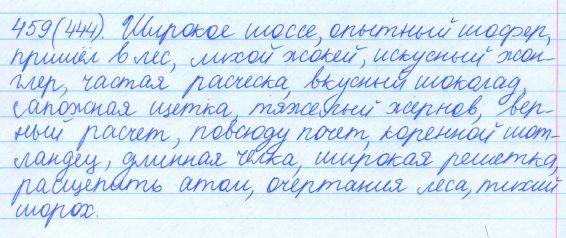 459(444). Широкое шоссе, опытный шофер,
пришёл в лес, лихой жокей, искусный жон-
глер, частая расческа, вкусный шоколад,
сапожная щетка, тяжелый жернов, вер-
ный расчет, повсюду почет, коренной шот-
ландец, длинная чёлка, широкая решетка,
расщепить атом, очертания леса, тихий
шорох.